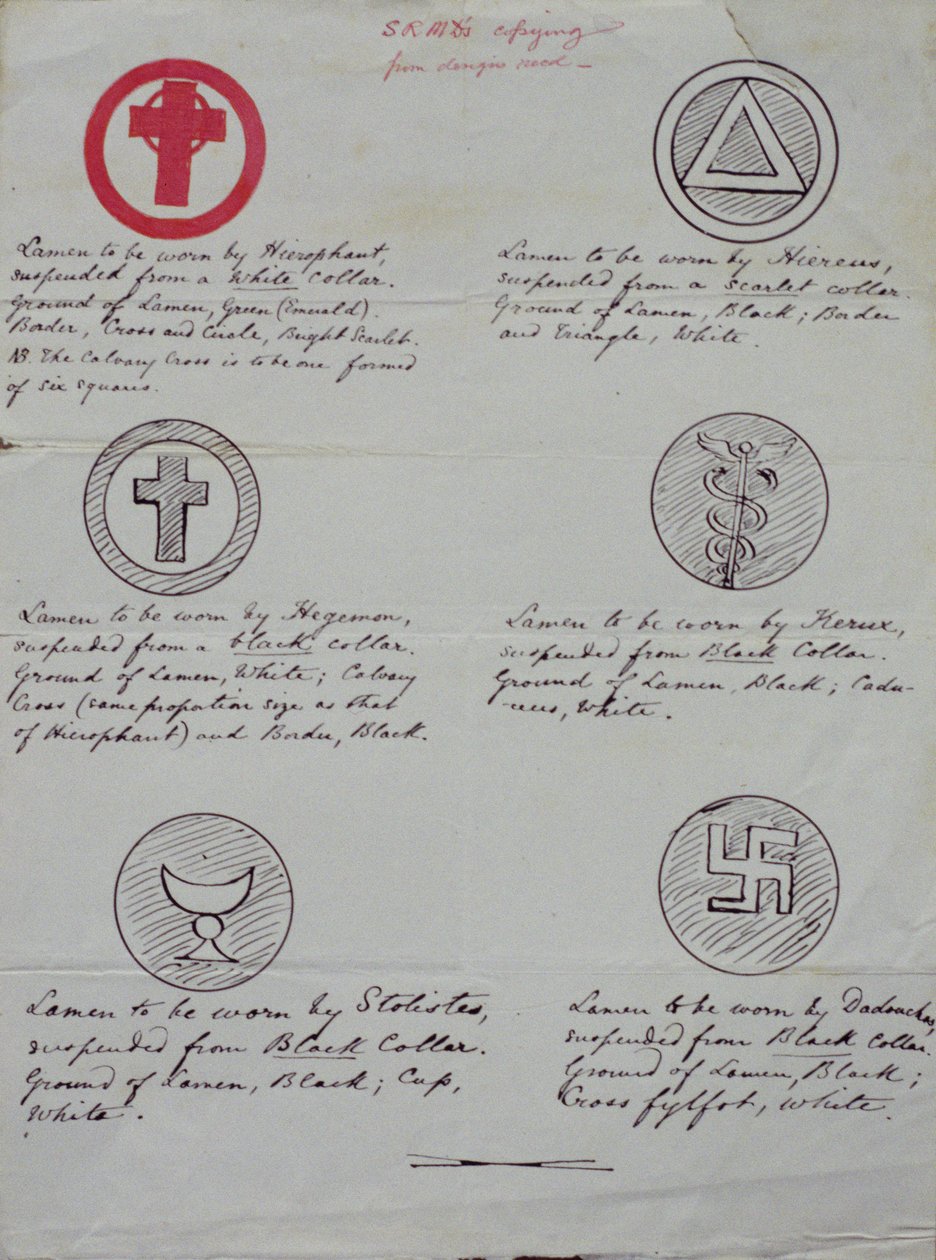 SRMD's copying
from designs recd —
Lamen to be worn by Hierophant,
suspended from a White collar.
Ground of Lamen, Green (Emerald).
Border, Cross and Circle, Bright Scarlet.
NB. The Calvary Cross is to be one formed
of six squares.
Lamen to be worn by Hiereus,
suspended from a scarlet collar.
Ground of Lamen, Black; Border
and Triangle, White.
Lamen to be worn by Hegemon,
suspended from a black collar.
Ground of Lamen, White; Calvary
Cross (same proportion size as that
of Hierophant) and Border, Black.
Lamen to be worn by Kerux,
suspended from Black Collar.
Ground of Lamen, Black; Cadu-
-ceus, White.
Lamen to be worn by Stolistes,
suspended from Black Collar.
Ground of Lamen, Black; Cup,
White.
Lamen to be worn by Dadouchos,
suspended from Black Collar.
Ground of Lamen, Black;
Cross fylfot, white.